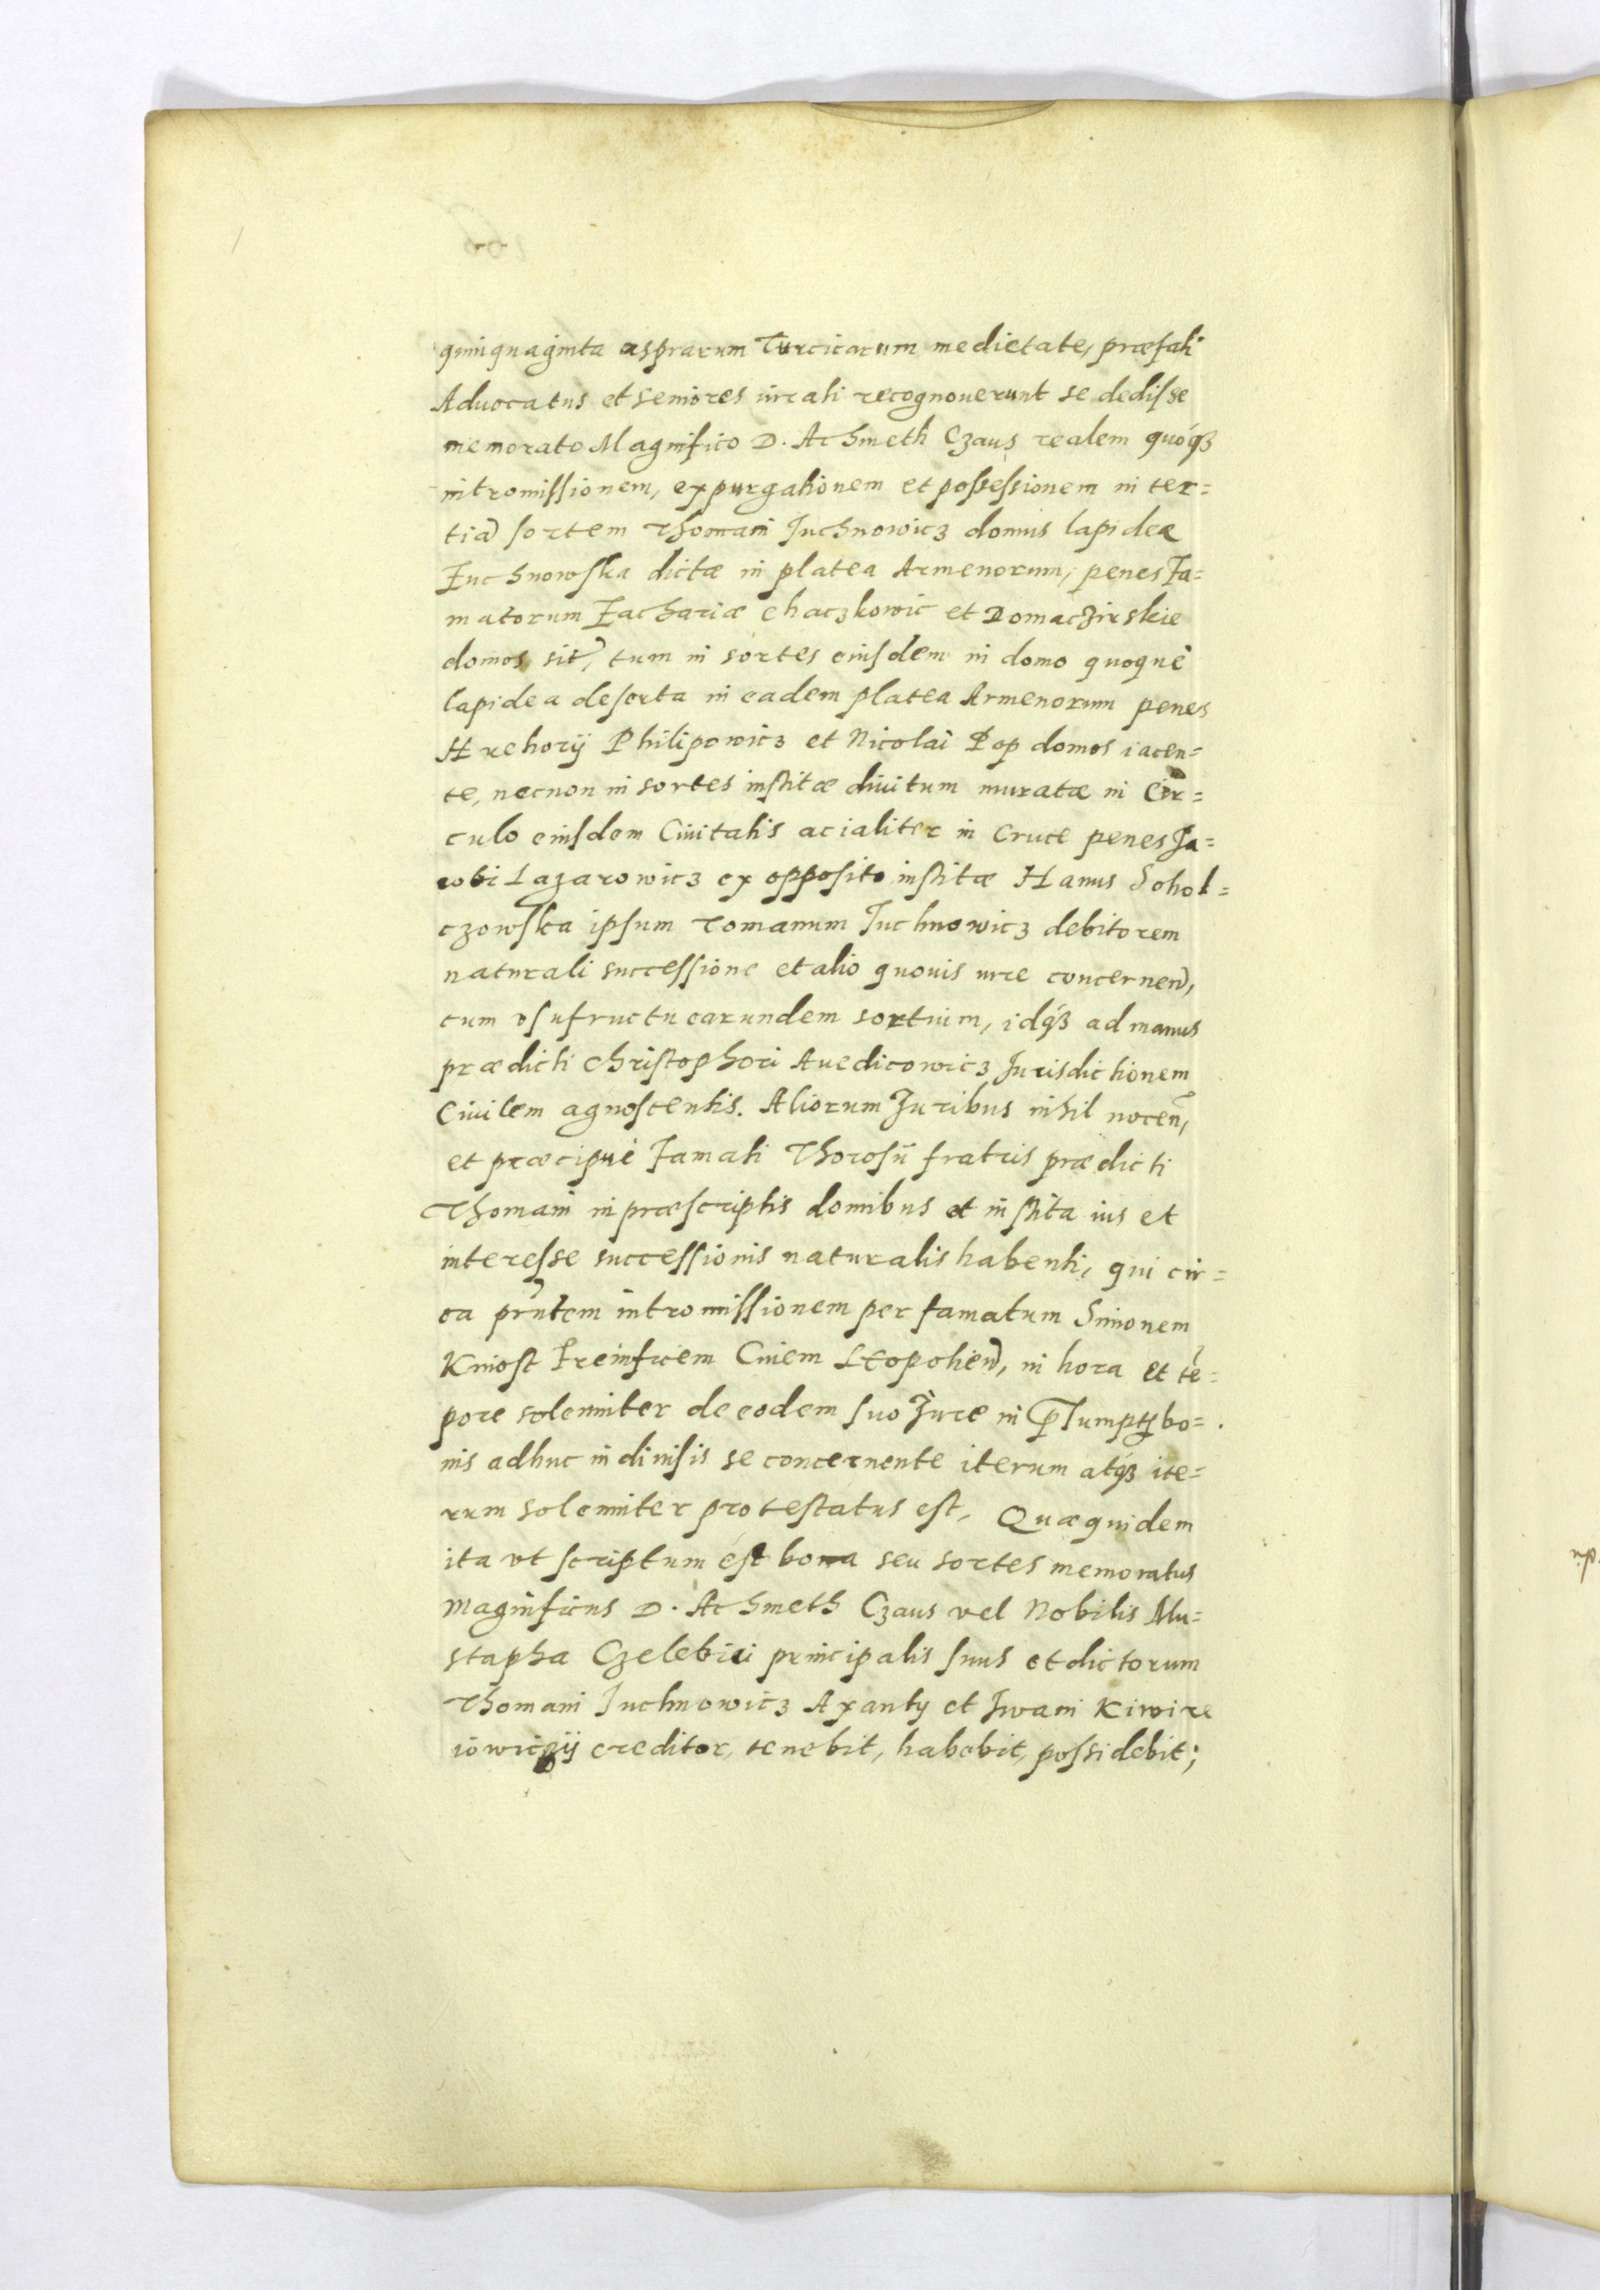 quinquaginta asprarum Turcicarum medietate, præfati
Advocatus et seniores iurati recognouerunt se dedisse
memorato Magnifico D. Achmeth Czaus realem quoq3
intromissionem, expurgationem et possessionem in ter=
tiã sortem Thomani Juchnowicz domus lapideæ
Juchnowska dictæ in platea Armenorum, penes Fa=
matorum Zachariæ Chaczkowic et Domaczirskie
domos sit, tum in sortes eiusdem in domo quoque
lapidea deserta in eadem platea Armenorum penes
Hrehorij Philipowicz et Nicolai Pop domos iacen=
te, necnon in sortes institæ diuitum muratæ in Cir=
culo eiusdem Ciuitatis acialiter in Cruce penes Ja=
cobi Lazarowicz ex opposito institæ Hanus Sohol=
czowska ipsum Tomanum Juchnowicz debitorem
naturali successione et alio quouis iure concernen,
cum vsufructu earundem sortium, idq3 ad manus
prædicti Christophori Auedicowicz Jurisdictionem
Ciuilem agnoscentis. Aliorum Juribus nihil nocen,
et præcipuè Famati Thorosÿ fratris prædicti
Thomani in præscriptis domibus et instita ius et
interesse successionis naturalis habenti, qui cir=
ca prñtem intromissionem per famatum Simonem
Kniost Freinficem Ciuem Leopolien, in hora et tē=
pore solenniter de eodem suo Jure in bo=
nis adhuc indiuisis se concernente iterum atq3 ite=
rum solenniter protestatus est. Quæquidem
ita vt scriptum est bona seu sortes memoratus
Magnificus D. Achmeth Czaus vel Nobilis Mu=
stapha Czelebi principalis suus et dictorum
Thomani Juchnowicz Axanty et Jwani Kirwire
iowiczij creditor, tenebit, habebit, possidebit;